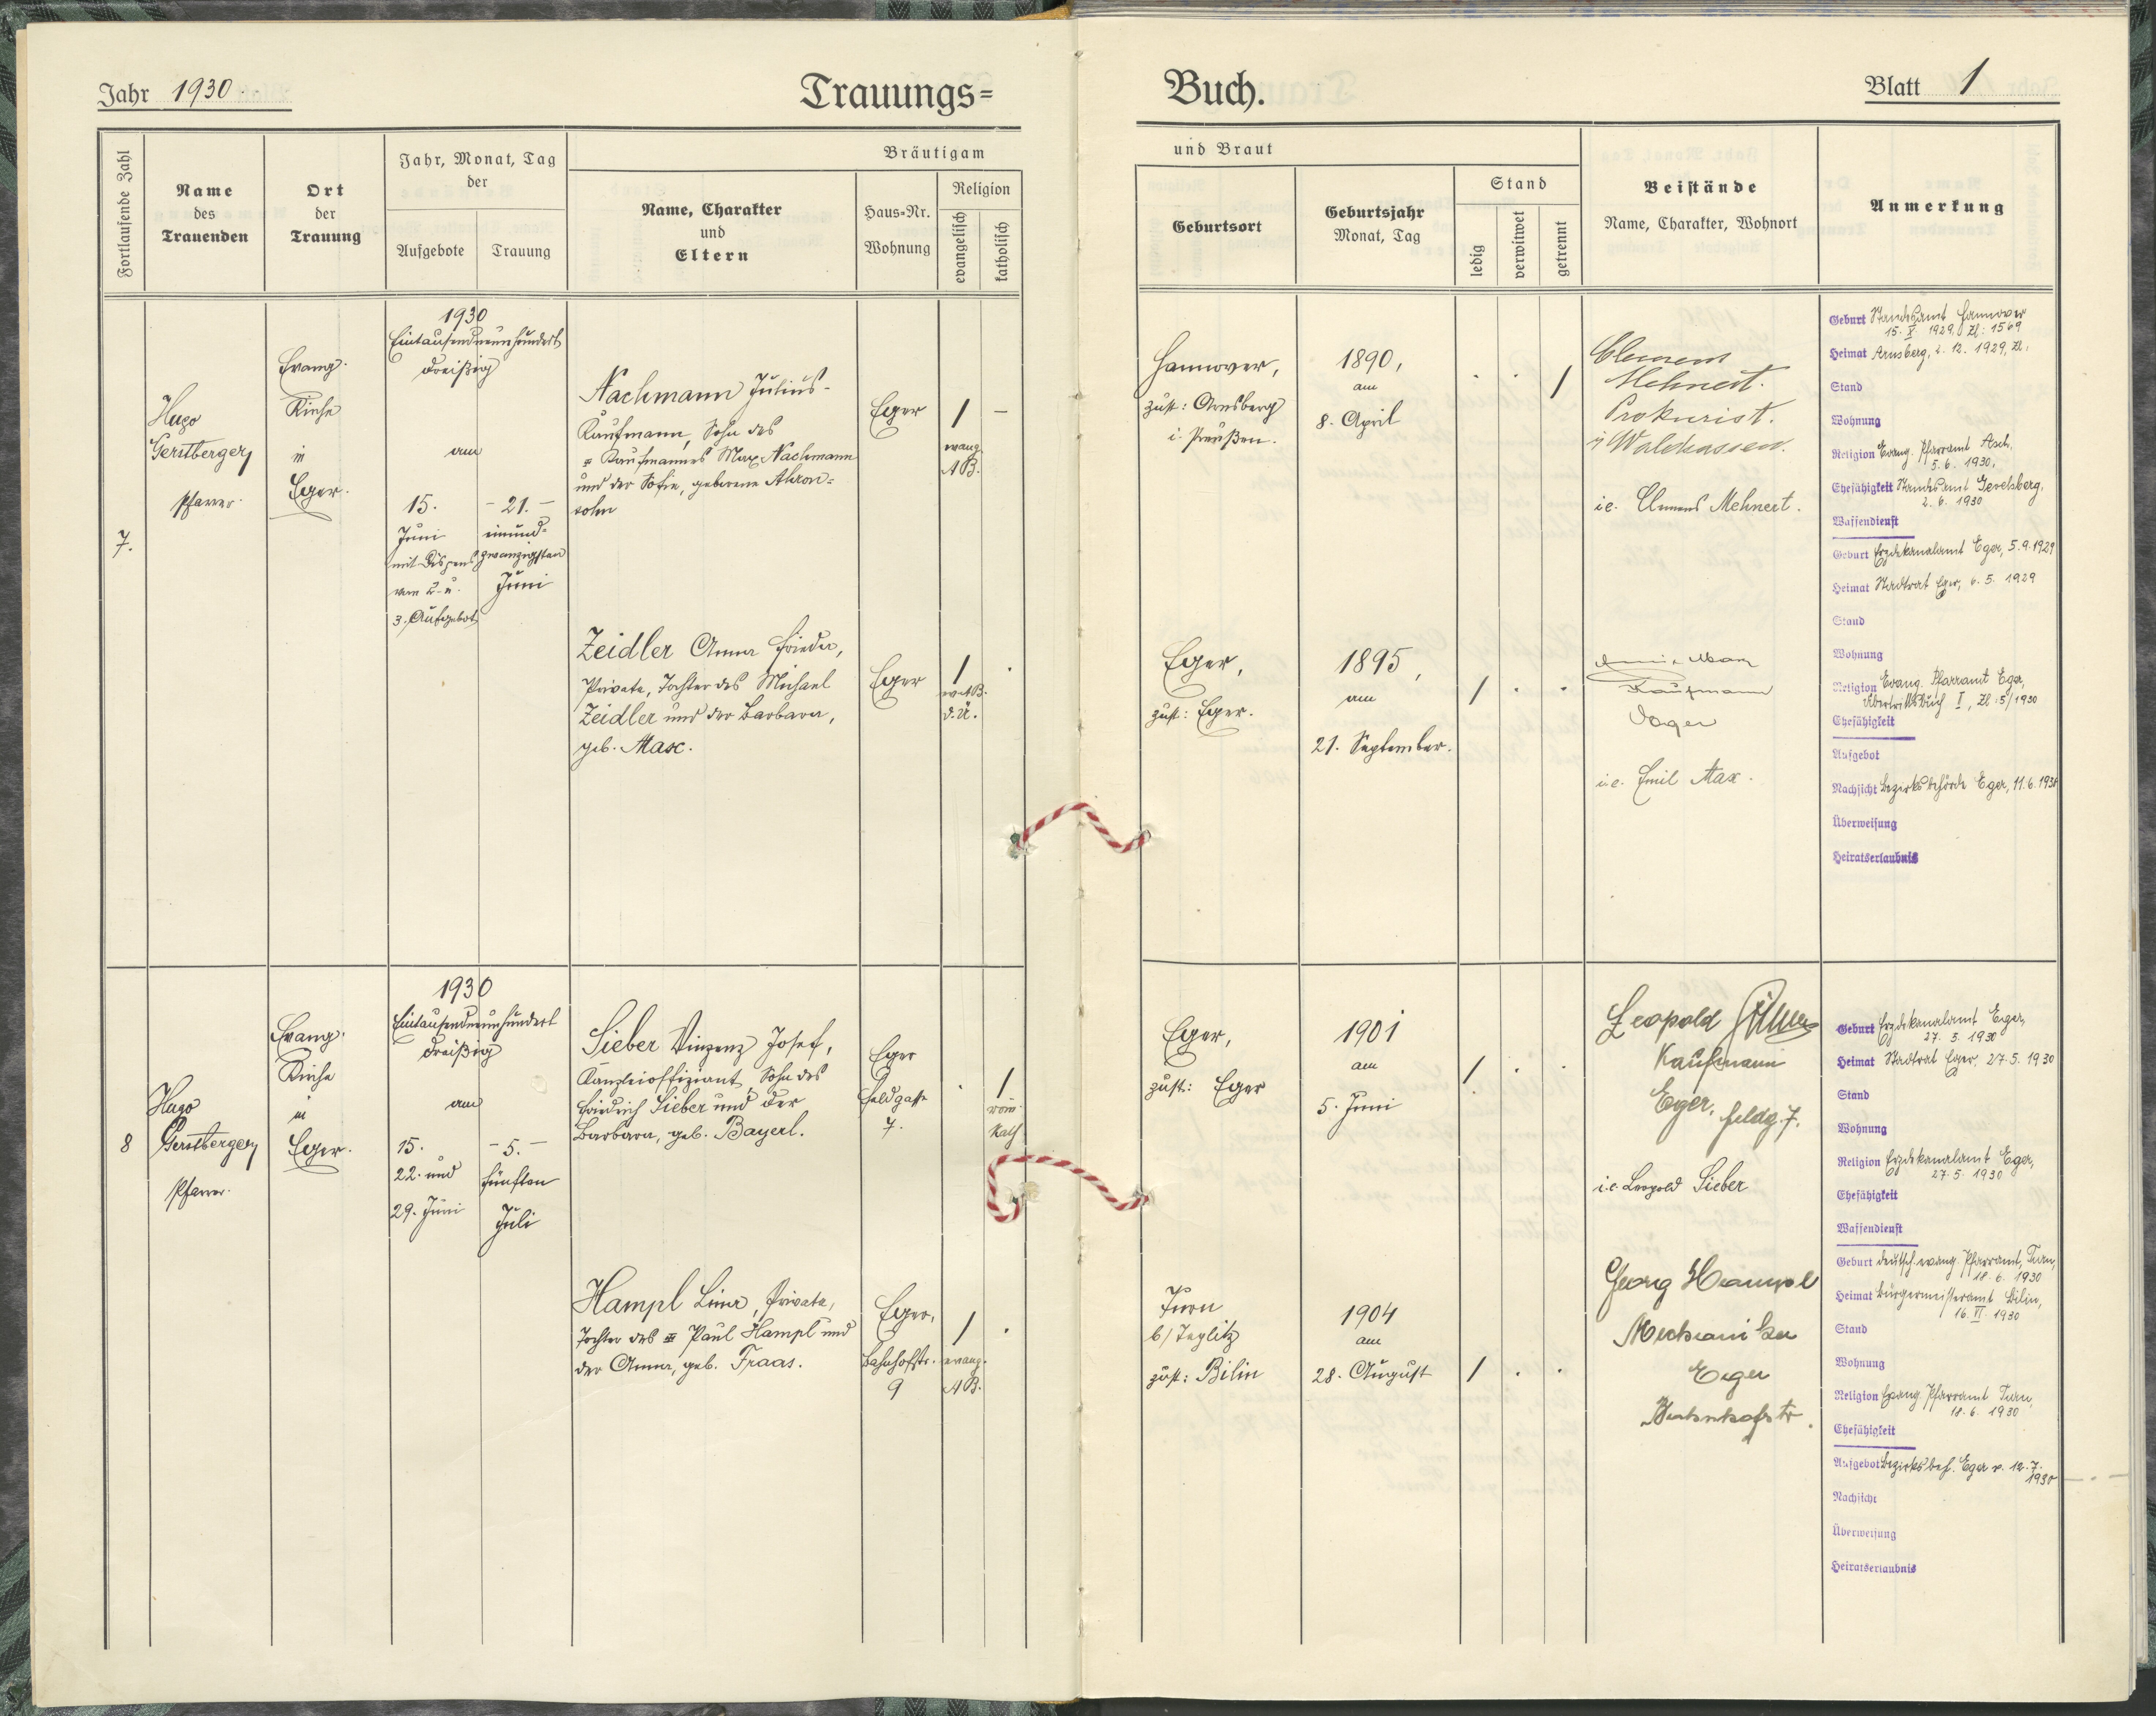 Jahr 1930
Trauungs=
Fortlaufende Zahl
Name
des
Trauenden
Ort
der
Trauung
Jahr, Monat, Tag
der
Aufgebote
Trauung
Bräutigam
Name, Charakter
und
Eltern
Haus=Nr.
Wohnung
Religion
evangelisch
katholisch
7.
Hugo
Gerstberger,
Pfarrer.
Evang.
Kirche
in
Eger.
1930
Eintausendneunhundert
dreißig
am
15.
Juni
mit Dispens
vom 2. u.
3. Aufgebot
- 21. -
einund=
zwanzigsten
Juni
Nachmann Julius -
Kaufmann, Sohn des
Kaufmannes Max Nachmann
und der Sofie, geborene Ahron=
sohn
Eger
evang.
A.B.
Zeidler Anna Frieda,
Private, Tochter des Michael
Zeidler und der Barbara,
geb. Max.
Eger
ev. A.B.
d. Ü.
8
Hugo
Gerstberger,
Pfarrer.
Evang.
Kirche
in
Eger.
1930
Eintausendneunhundert
dreißig
am
15.
22. und
29. Juni
- 5. -
fünften
Juli
Sieber Vinzenz Josef,
Kanzleioffiziant, Sohn des
Friedrich Sieber und der
Barbara, geb. Bayerl.
Eger
Feldgasse
7.
röm.
kath.
Hampl Lina, Private,
Tochter des Paul Hampl und
der Anna, geb. Fraas.
Eger,
Bahnhofstr.
9
evang.
A.B.
Buch.
Blatt 1
und Braut
Geburtsort
Geburtsjahr
Monat, Tag
Stand
ledig
verwitwet
getrennt
Beistände
Name, Charakter, Wohnort
Anmerkung
Hannover,
zust: Arnsberg
i. Preußen.
1890,
am
8. April
Clemens
Mehnert.
Prokurist.
i/ Waldsassen.
i.e. Clemens Mehnert.
Geburt Standesamt Hannover
15. X. 1929, Zl: 1569
Heimat Arnsberg, 2. 12. 1929, Zl.
Stand
Wohnung
Religion Evang. Pfarramt Asch,
5. 6. 1930.
Ehefähigkeit Standesamt Gevelsberg,
2. 6. 1930
Waffendienst
Eger,
zust: Eger.
1895,
am
21. September.
Kaufmann
Eger
i.e. Emil Max.
Geburt Erzdekanalamt Eger, 5. 9. 1929
Heimat Stadtrat Eger, 6. 5. 1929
Stand
Wohnung
Religion Evang. Pfarramt Eger,
Übertrittsbuch I, Zl: 5/1930
Ehefähigkeit
Aufgebot
Nachsicht Bezirksbehörde Eger, 11. 6. 1930
Überweisung
Heiratserlaubnis
Eger,
zust: Eger
1901
am
5. Juni
Leopold Sieber
Kaufmann
Eger, Feldg. 7.
i.e. Leopold Sieber
Geburt Erzdekanalamt Eger,
27. 5. 1930
Heimat Stadtrat Eger, 27. 5. 1930
Stand
Wohnung
Religion Erzdekanalamt Eger,
27. 5. 1930
Ehefähigkeit
Waffendienst
Turn
b/ Teplitz
zust: Bilin
1904
am
28. August
Georg Hampl
Mechaniker
Eger
Bahnhofstr.
Geburt deutsch. evang. Pfarramt, Turn,
18. 6. 1930
Heimat Bürgermeisteramt Bilin,
16. VI. 1930
Stand
Wohnung
Religion Evang. Pfarramt Turn,
18. 6. 1930
Ehefähigkeit
Aufgebot Bezirksbeh. Eger v. 12. 7.
1930
Nachsicht
Überweisung
Heiratserlaubnis